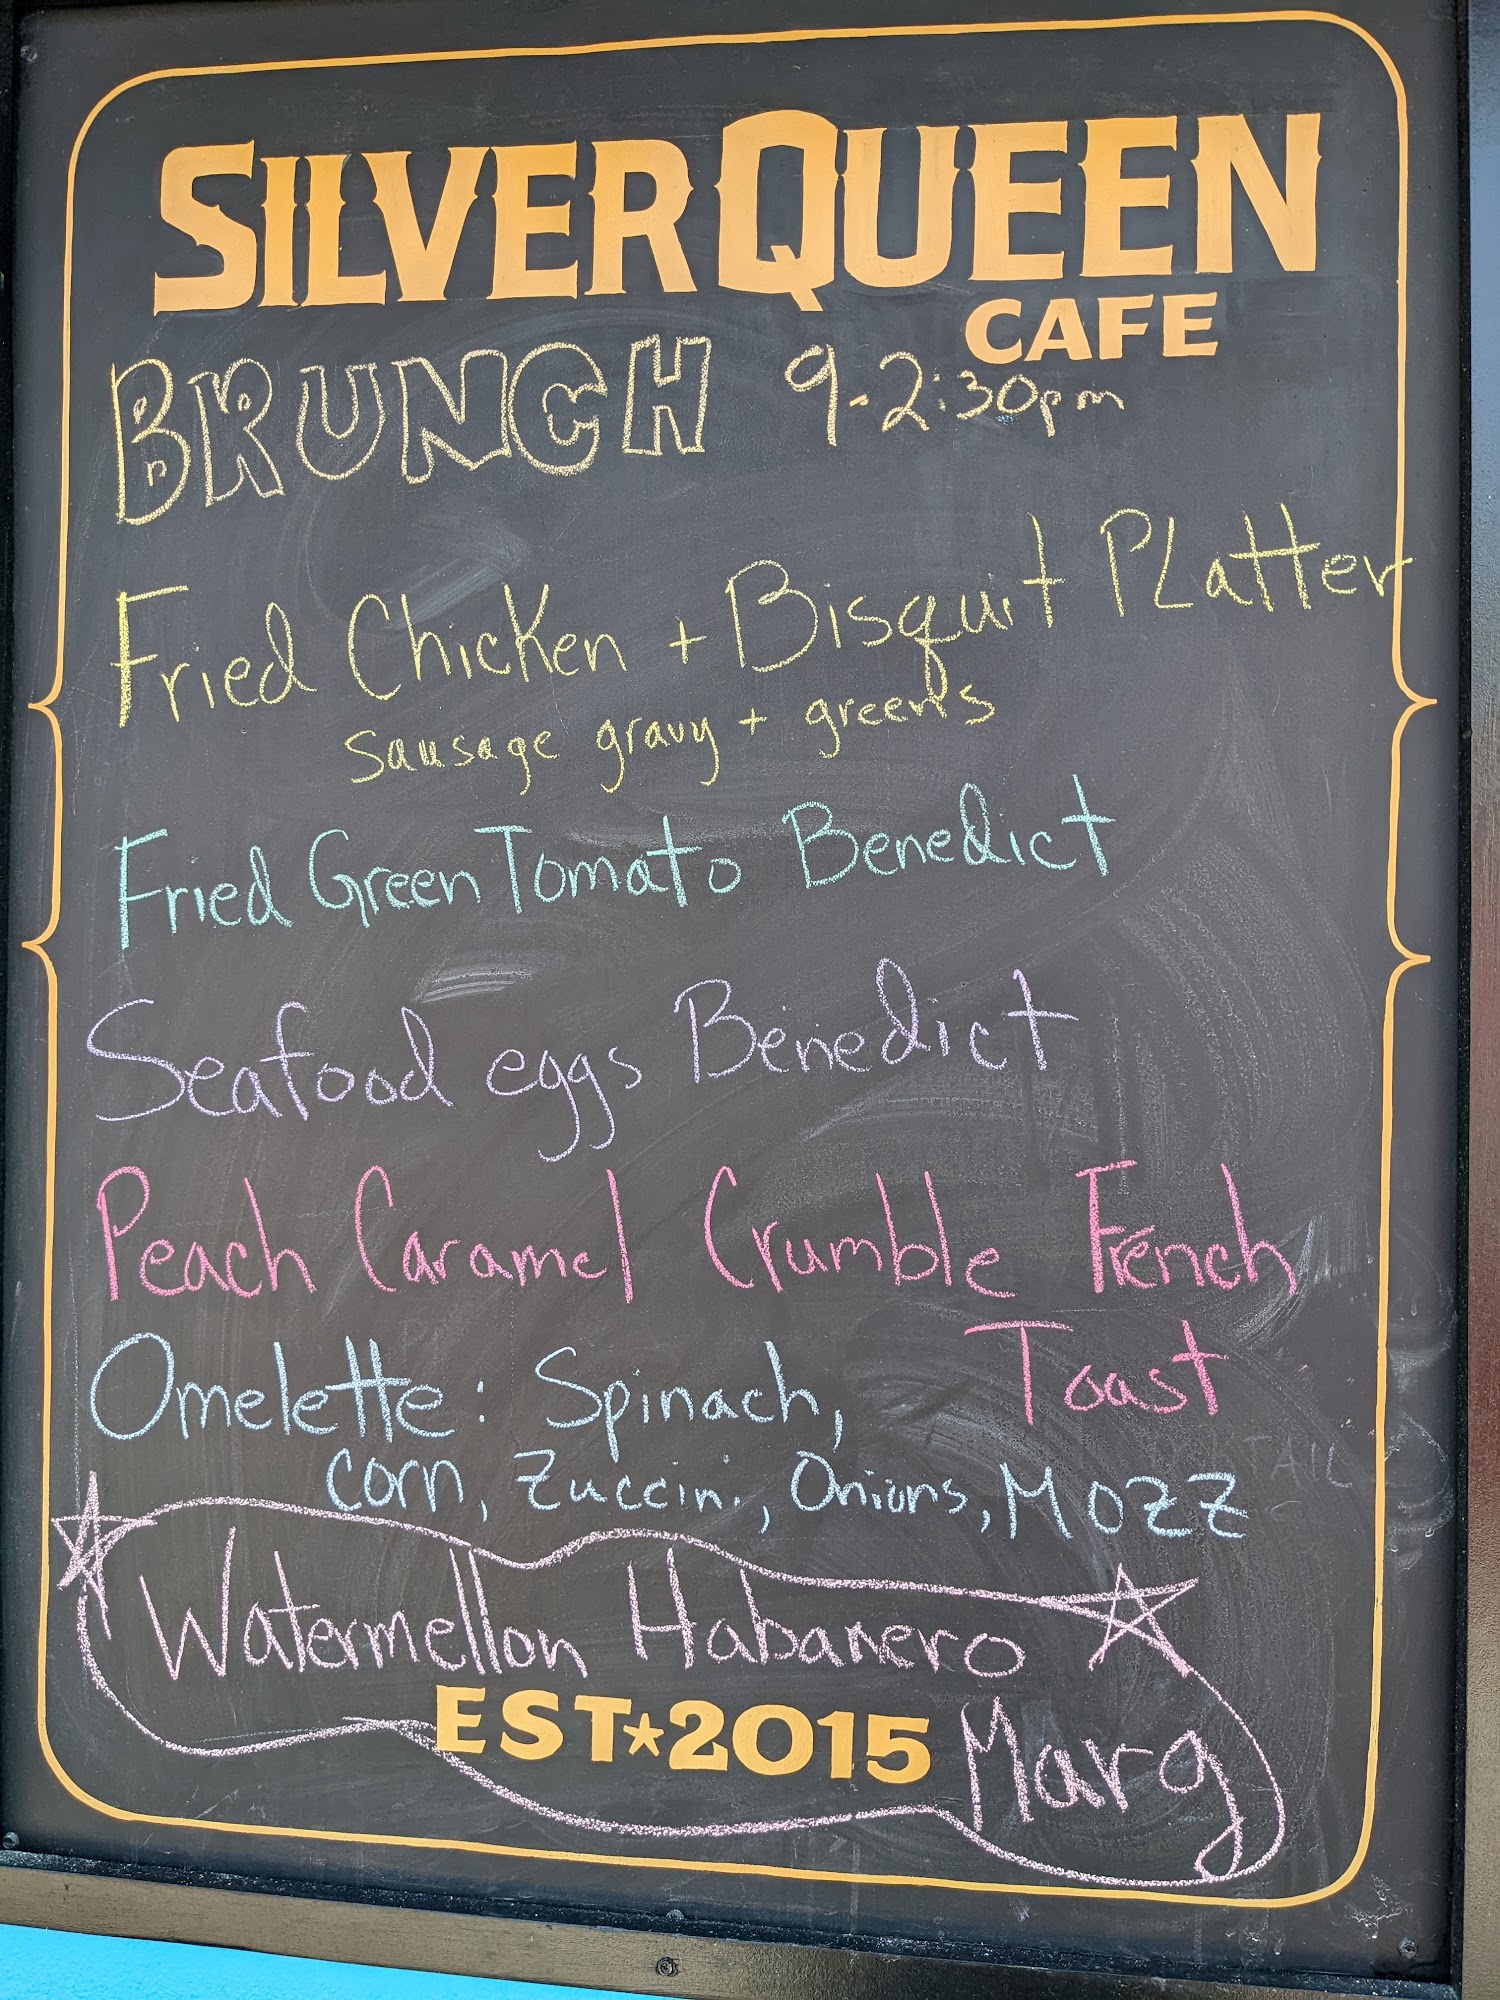 SILVER QUEEN
CAFE
BRUNCH 9-2:30pm
Fried Chicken + Bisquit Platter
Sausage gravy + greens
Fried Green Tomato Benedict
Seafood eggs Benedict
Peach Caramel Crumble French
Toast
Omelette: Spinach,
corn, Zuccini, Onions, MOZZ
Watermellon Habanero
Marg
EST★2015